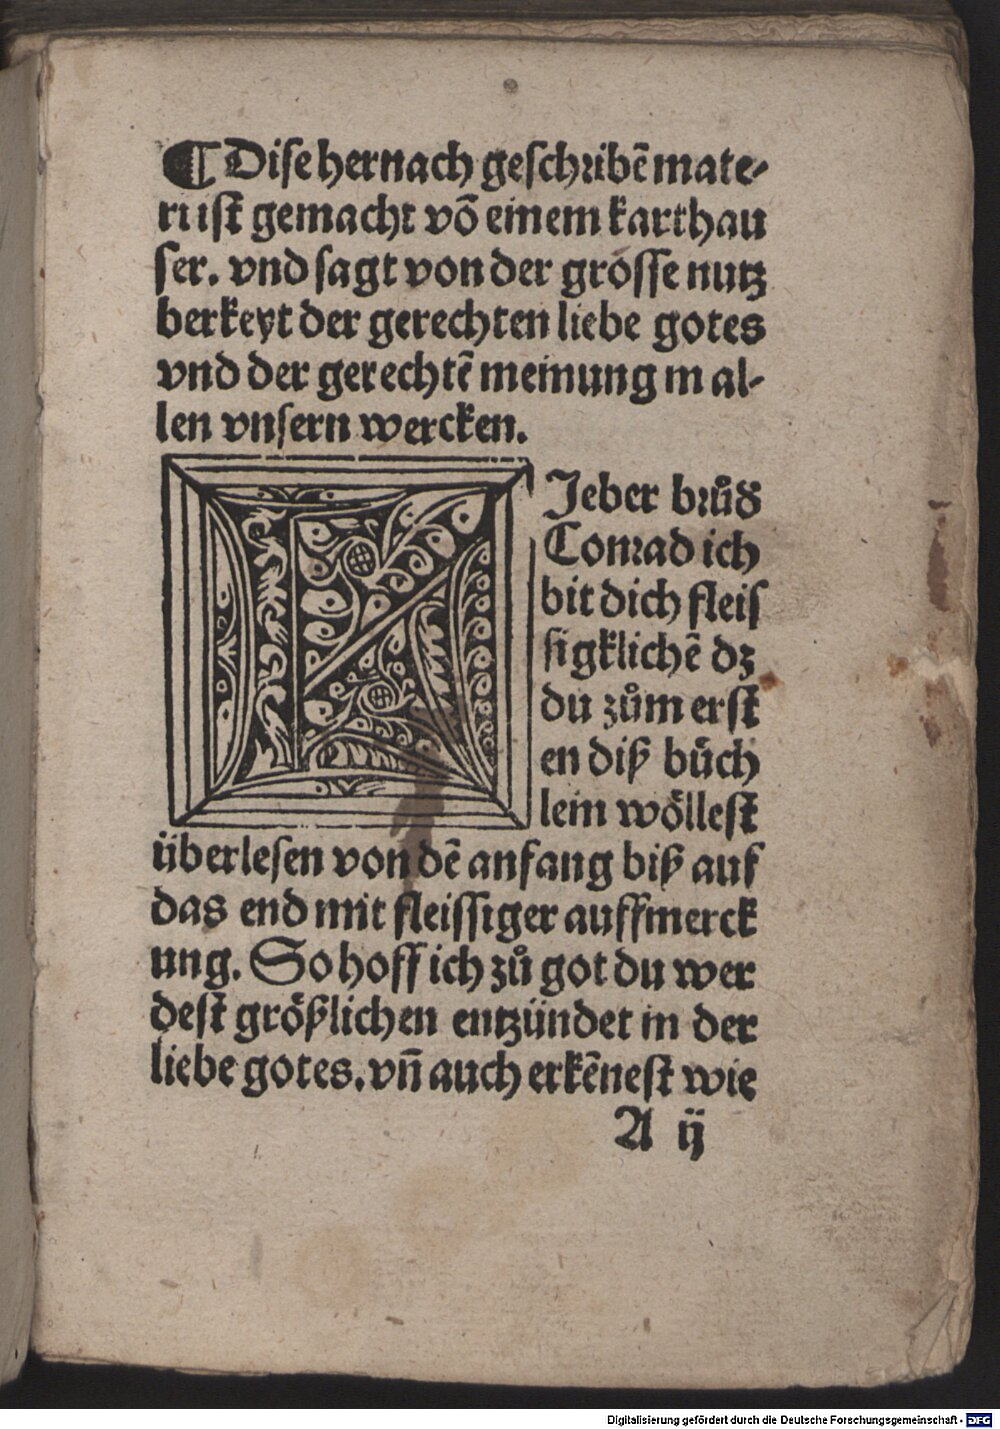 ¶ Dise hernach geschribē mate-
ri ist gemacht võ einem karthau
ser. vnd sagt von der grösse nutz
berkeyt der gerechten liebe gotes
vnd der gerechtē meinung in al-
len vnsern wercken.
LIeber brůd
Conrad ich
bit dich fleis
sigklichē dz
du zům erst
en diß bůch
lein wöllest
überlesen von dē anfang biß auf
das end mit fleissiger auffmerck
ung. So hoff ich zů got du wer
dest größlichen entzündet in der
liebe gotes. vñ auch erkēnest wie
A ij
Digitalisierung gefördert durch die Deutsche Forschungsgemeinschaft - DFG